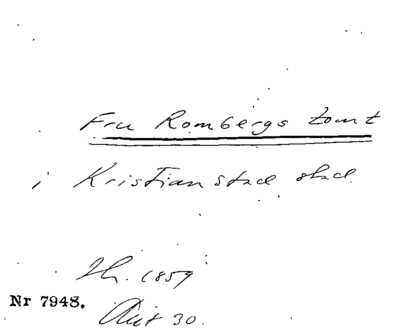 Fru Rombergs tomt
i Kristianstad stad.
Th. 1859
Nr 7948.
Aut 30.